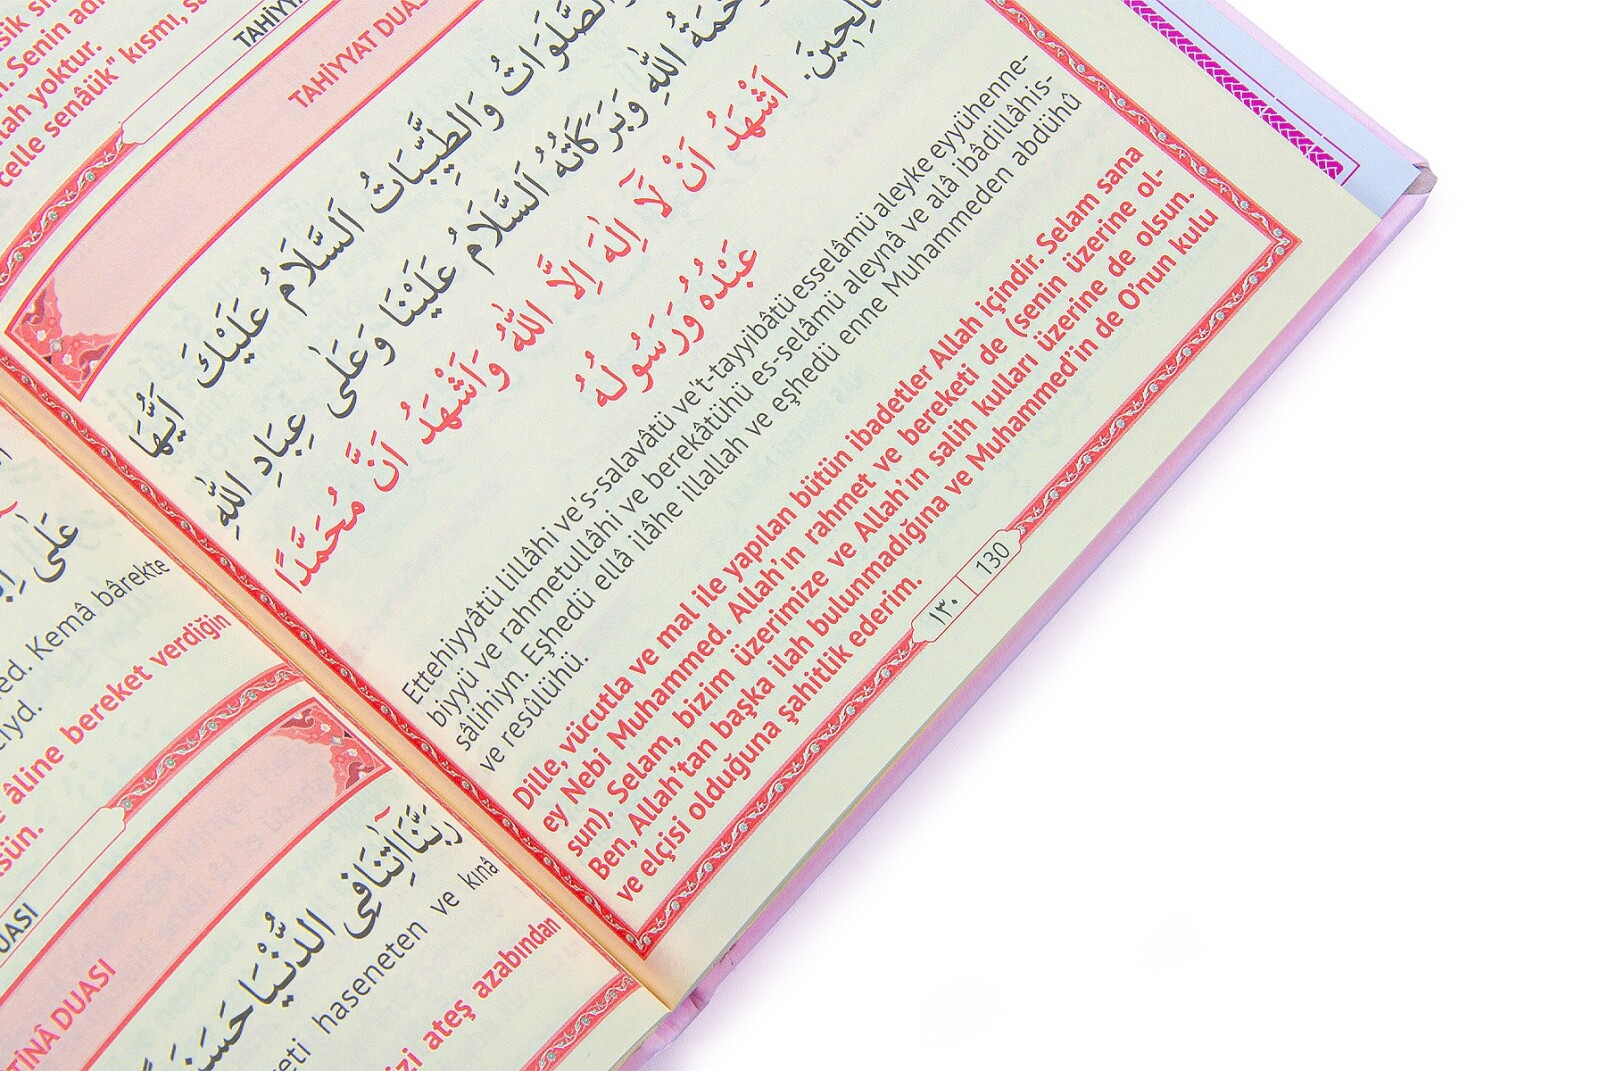 celle senâük" kısmı,
TAHİYYAT
وَالصَّلَوَاتُ وَالطَّيِّبَاتُ اَلسَّلَامُ عَلَيْكَ اَيُّهَا
اللّٰهِ وَبَرَكَاتُهُ اَلسَّلَامُ عَلَيْنَا وَعَلٰى عِبَادِ اللّٰهِ
اَشْهَدُ اَنْ لَٓا اِلٰهَ اِلَّا اللّٰهُ وَاَشْهَدُ اَنَّ مُحَمَّدًا
عَبْدُهُ وَرَسُولُهُ
Ettehiyyâtü lillâhi ve's-salavâtü ve't-tayyibâtü esselâmü aleyke eyyühenne-
biyyü ve rahmetullâhi ve berekâtühü es-selâmü aleynâ ve alâ ibâdillâhis-
sâlihiyn. Eşhedü ellâ ilâhe illallah ve eşhedü enne Muhammeden abdühû
ve resûlühü.
Dille, vücutla ve mal ile yapılan bütün ibadetler Allah içindir. Selam sana
ey Nebi Muhammed. Allah'ın rahmet ve bereketi de (senin üzerine ol-
sun). Selam, bizim üzerimize ve Allah'ın salih kulları üzerine de olsun.
Ben, Allah'tan başka ilah bulunmadığına ve Muhammed'in de O'nun kulu
ve elçisi olduğuna şahitlik ederim.
١٣٠ 130
. Senin
yoktur.
عَلٰى
Kemâ bârekte
âline bereket verdiğin
DUASI
رَبَّنَا اٰتِنَا فِي الدُّنْيَا
haseneten ve kınâ
ateş azabından